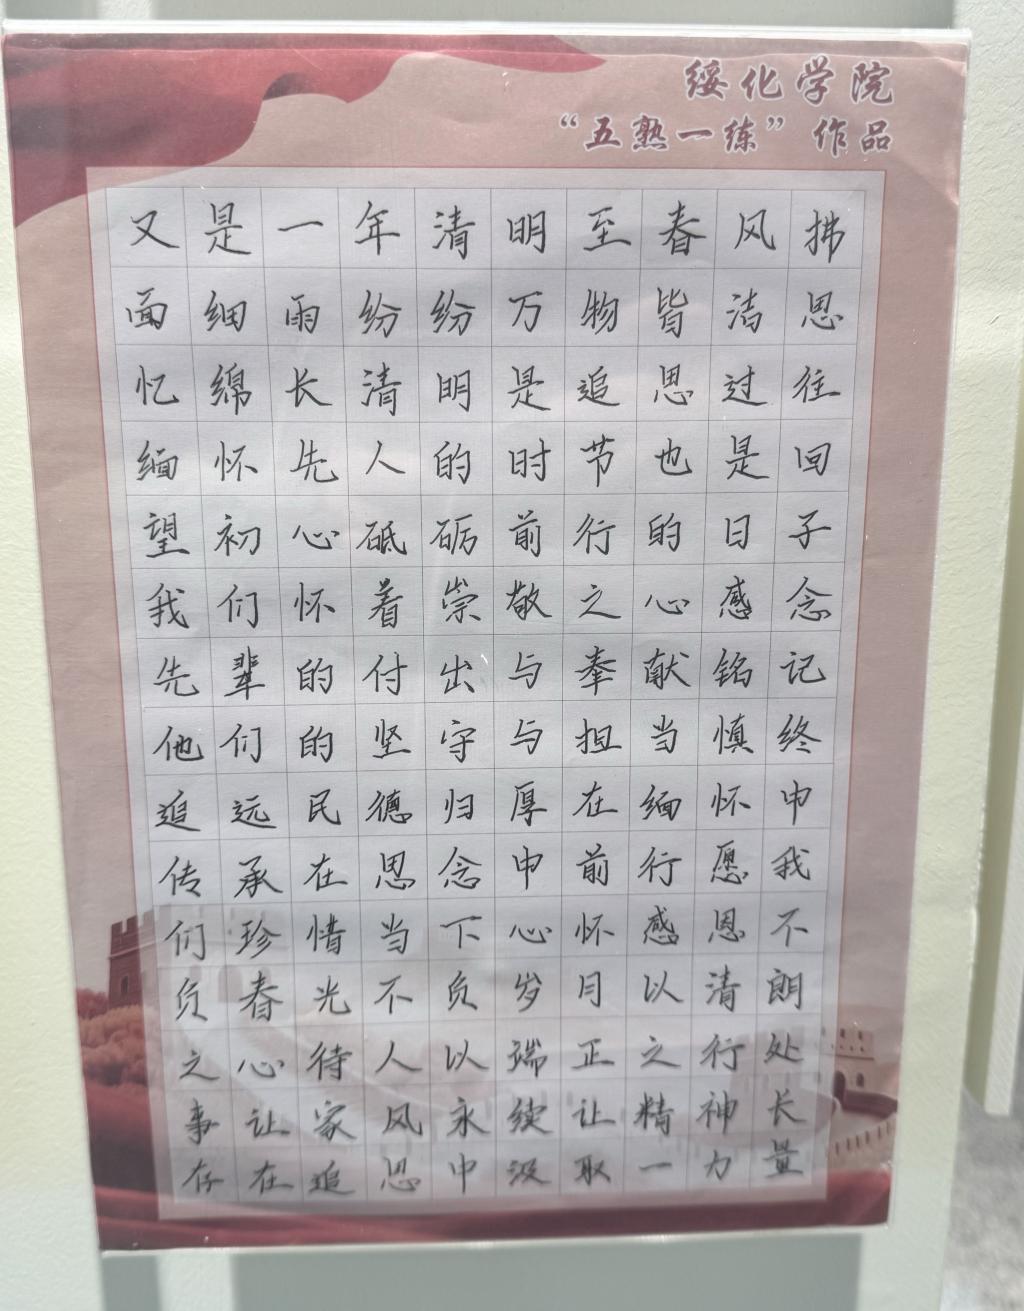 绥化学院
“五熟一练”作品
又是一年清明至春风拂
面细雨纷纷万物皆洁思
忆绵长清明是追思过往
缅怀先人的时节也是回
望初心砥砺前行的日子
我们怀着崇敬之心感念
先辈的付出与奉献铭记
他们的坚守与担当慎终
追远民德归厚在缅怀中
传承在思念中前行愿我
们珍惜当下心怀感恩不
负春光不负岁月以清朗
之心待人以端正之行处
事让家风永续让精神长
存在追思中汲取一力量